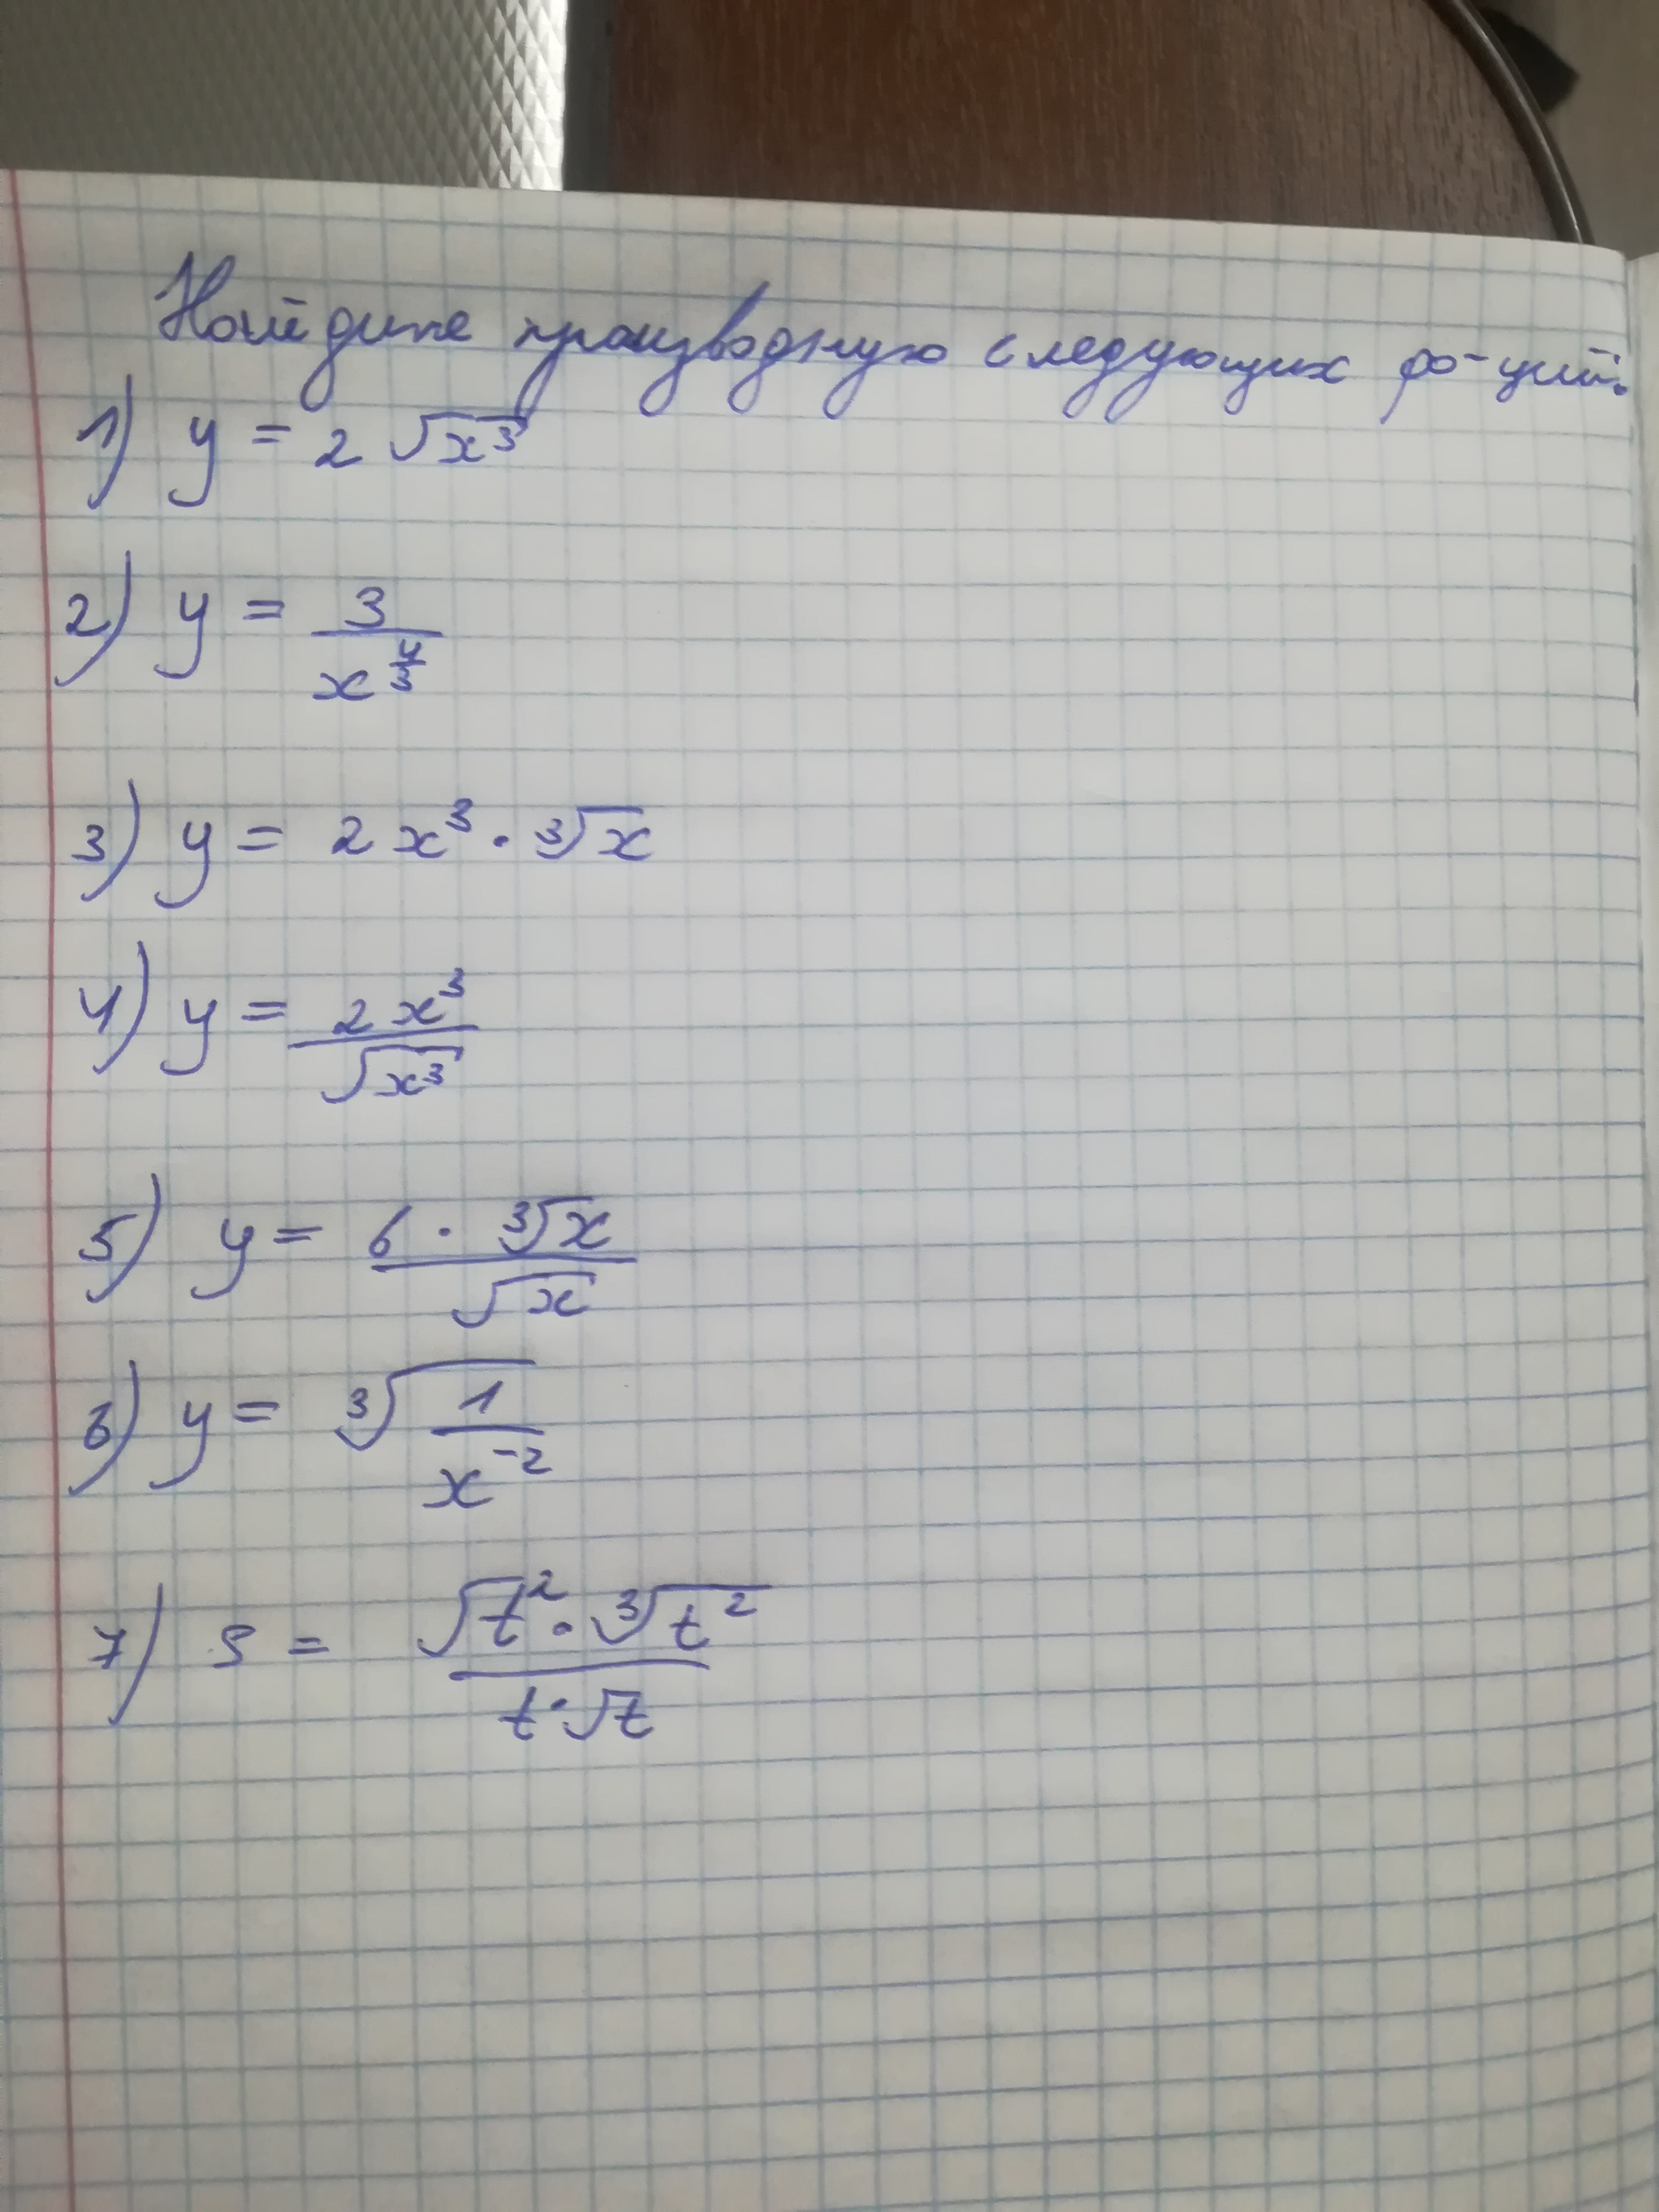 Найдите производную следующих ф-ций:
1) y = 2√x³
2) y = 3/x^(4/3)
3) y = 2x³ · ³√x
4) y = 2x³/√x³
5) y = 6 · ³√x/√x
6) y = ³√(1/x⁻²)
7) s = √t² · ³√t²/t·√t